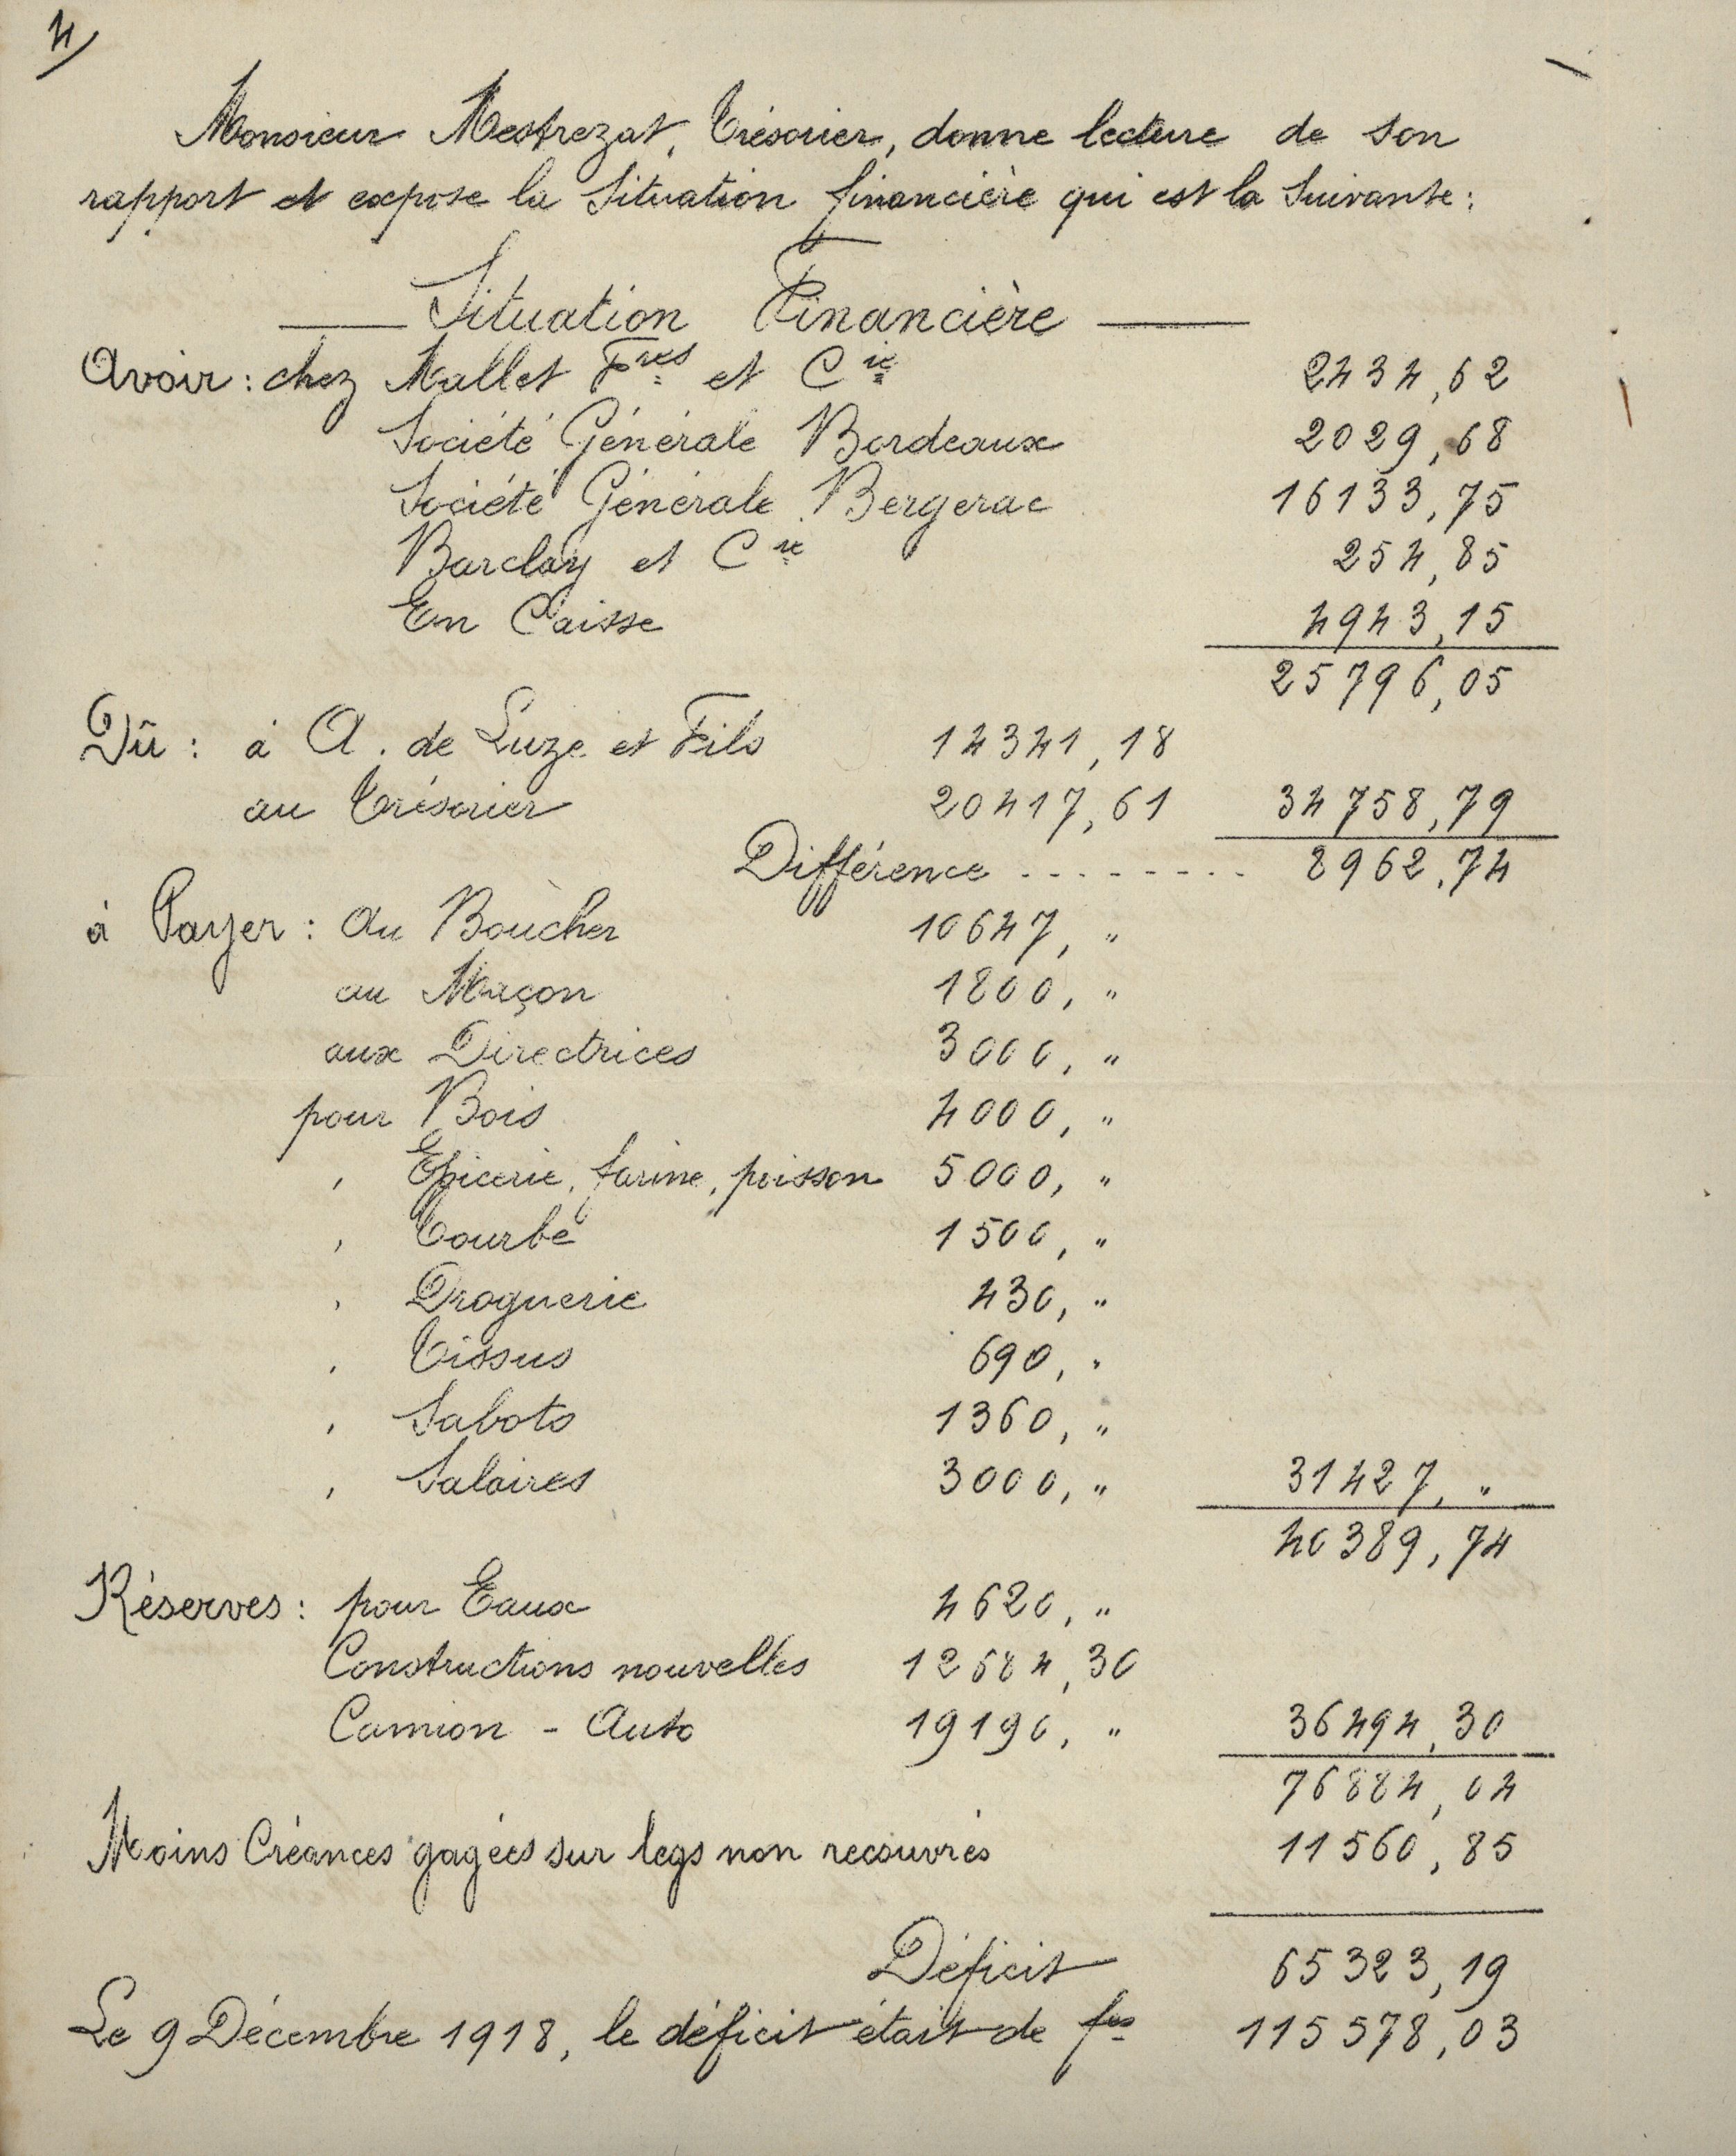 4/
Monsieur Mestrezat, Trésorier, donne lecture de son
rapport et expose la Situation financière qui est la Suivante :
Situation Financière
Avoir : chez Mallet Fres et Cie 2434,62
Société Générale Bordeaux 2029,68
Société Générale Bergerac 16133,75
Barclay et Cie 254,85
En Caisse 4943,15
25796,05
Dû : à A. de Luze et Fils 14341,18
au Trésorier 20417,61 34758,79
Différence ........ 8962,74
à Payer : au Boucher 10647, "
au Maçon 1800, "
aux Directrices 3000, "
pour Bois 4000, "
, Epicerie, farine, poisson 5000, "
, Tourbe 1500, "
, Droguerie 430, "
, Tissus 690, "
, Sabots 1360, "
, Salaires 3000, " 31427, "
40389,74
Réserves : pour Eaux 4620, "
Constructions nouvelles 12684,30
Camion - Auto 19190, " 36494,30
76884,04
Moins Créances gagées sur legs non recouvrés 11560,85
Déficit 65323,19
Le 9 Décembre 1918, le déficit était de frs 115578,03